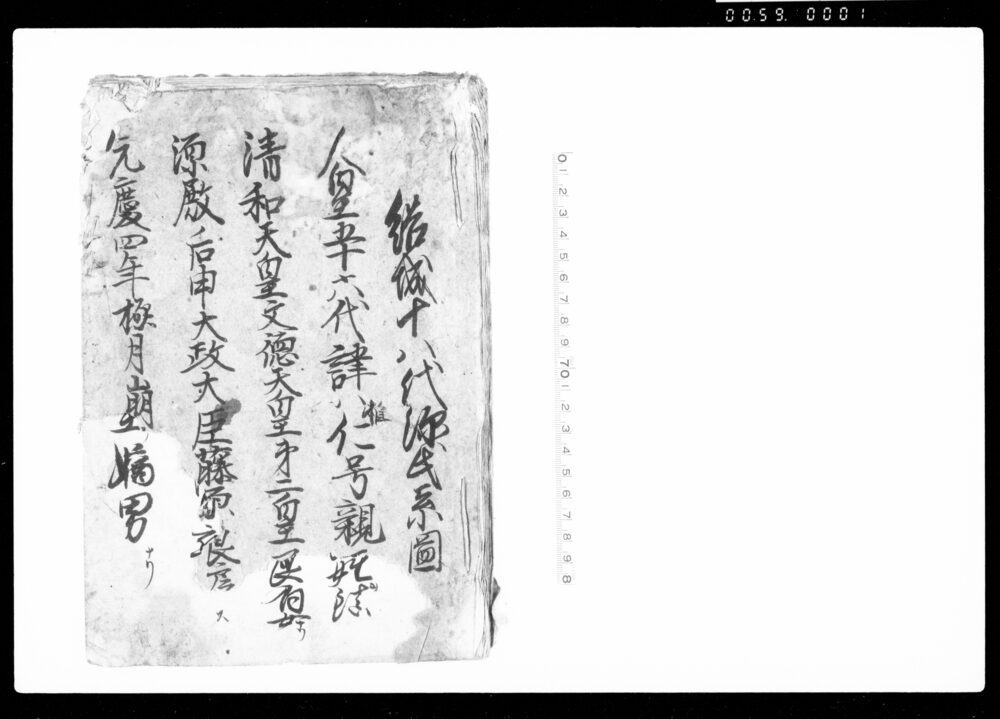 結城十八代源氏系圖
人皇五十六代諱ハ惟仁号親
清和天皇文德天皇第二皇
源殿后申大政大臣藤原良房
元慶四年極月崩ス嫡男ナリ
00:59. 0001
0 1 2 3 4 5 6 7 8 9 70 1 2 3 4 5 6 7 8 9 8